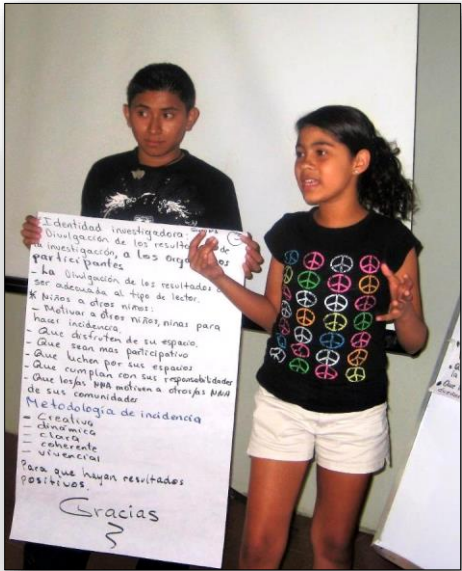 Identidad investigadora:
Divulgación de los resultados de
la investigación, a los
participantes
- La Divulgación de los resultados
ser adecuada al tipo de lector.
* Niños a otros niños:
- Motivar a otros niños, niñas para
hacer incidencia.
- Que disfruten de su espacio.
- Que sean más participativo
- Que luchen por sus espacios
- Que cumplan con sus responsabilidades
- Que los/as NNA motiven a otros/as NNA
de sus comunidades
Metodología de incidencia
- Creativa
- dinámica
- clara
- coherente
- vivencial
Para que hayan resultados
positivos.
Gracias